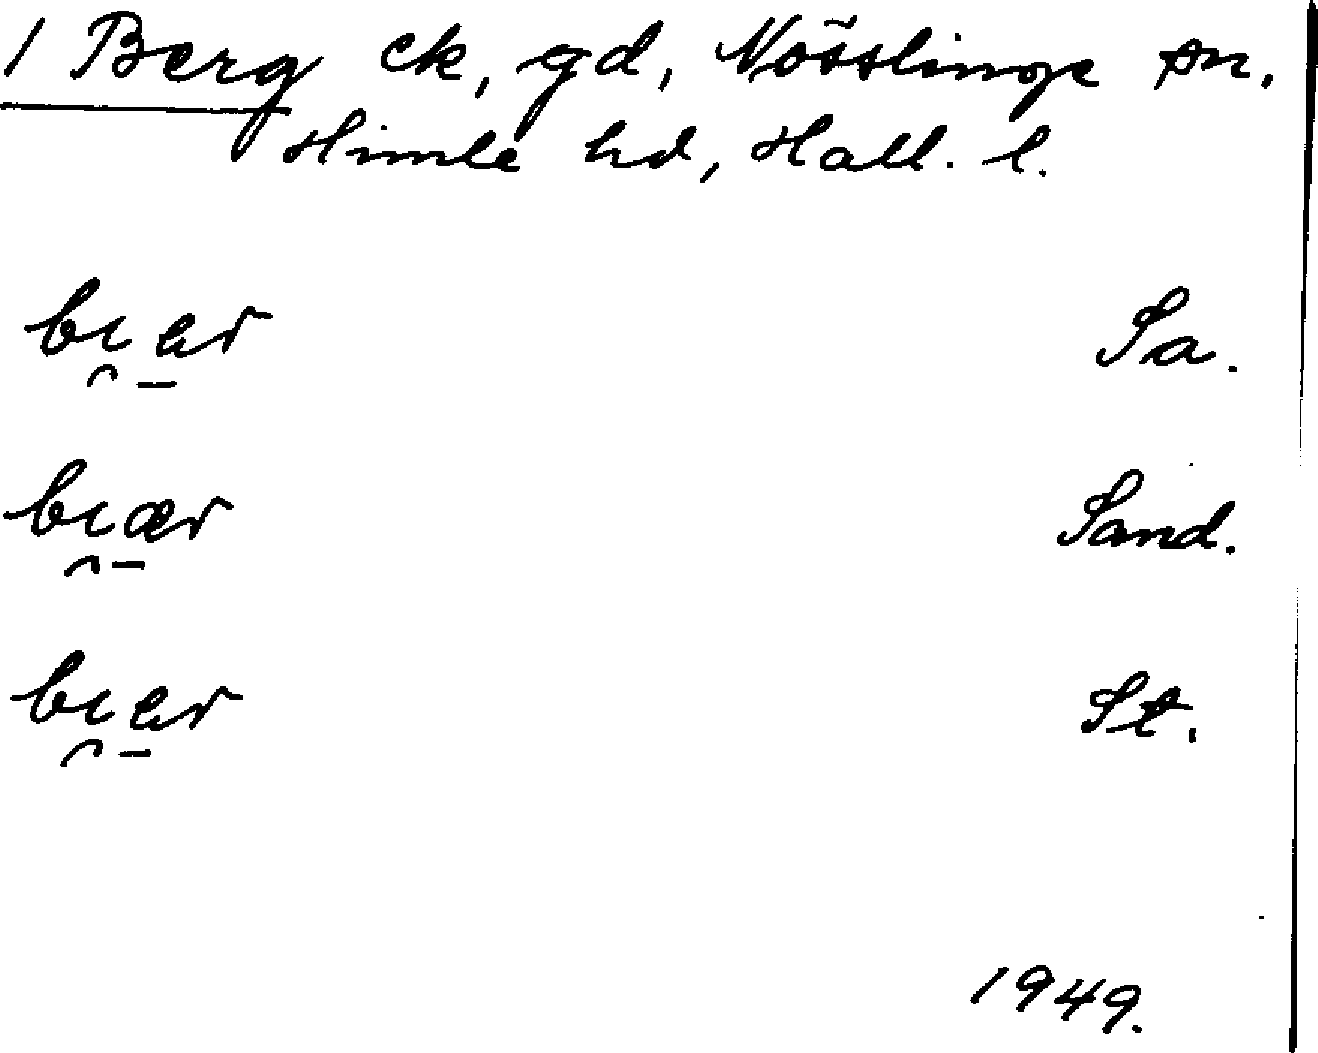 1 Berg ek, gd, Nösslinge sn,
Himle hd, Hall. l.
bɩær Sa.
bɩær Sand.
bɩær St.
1949.